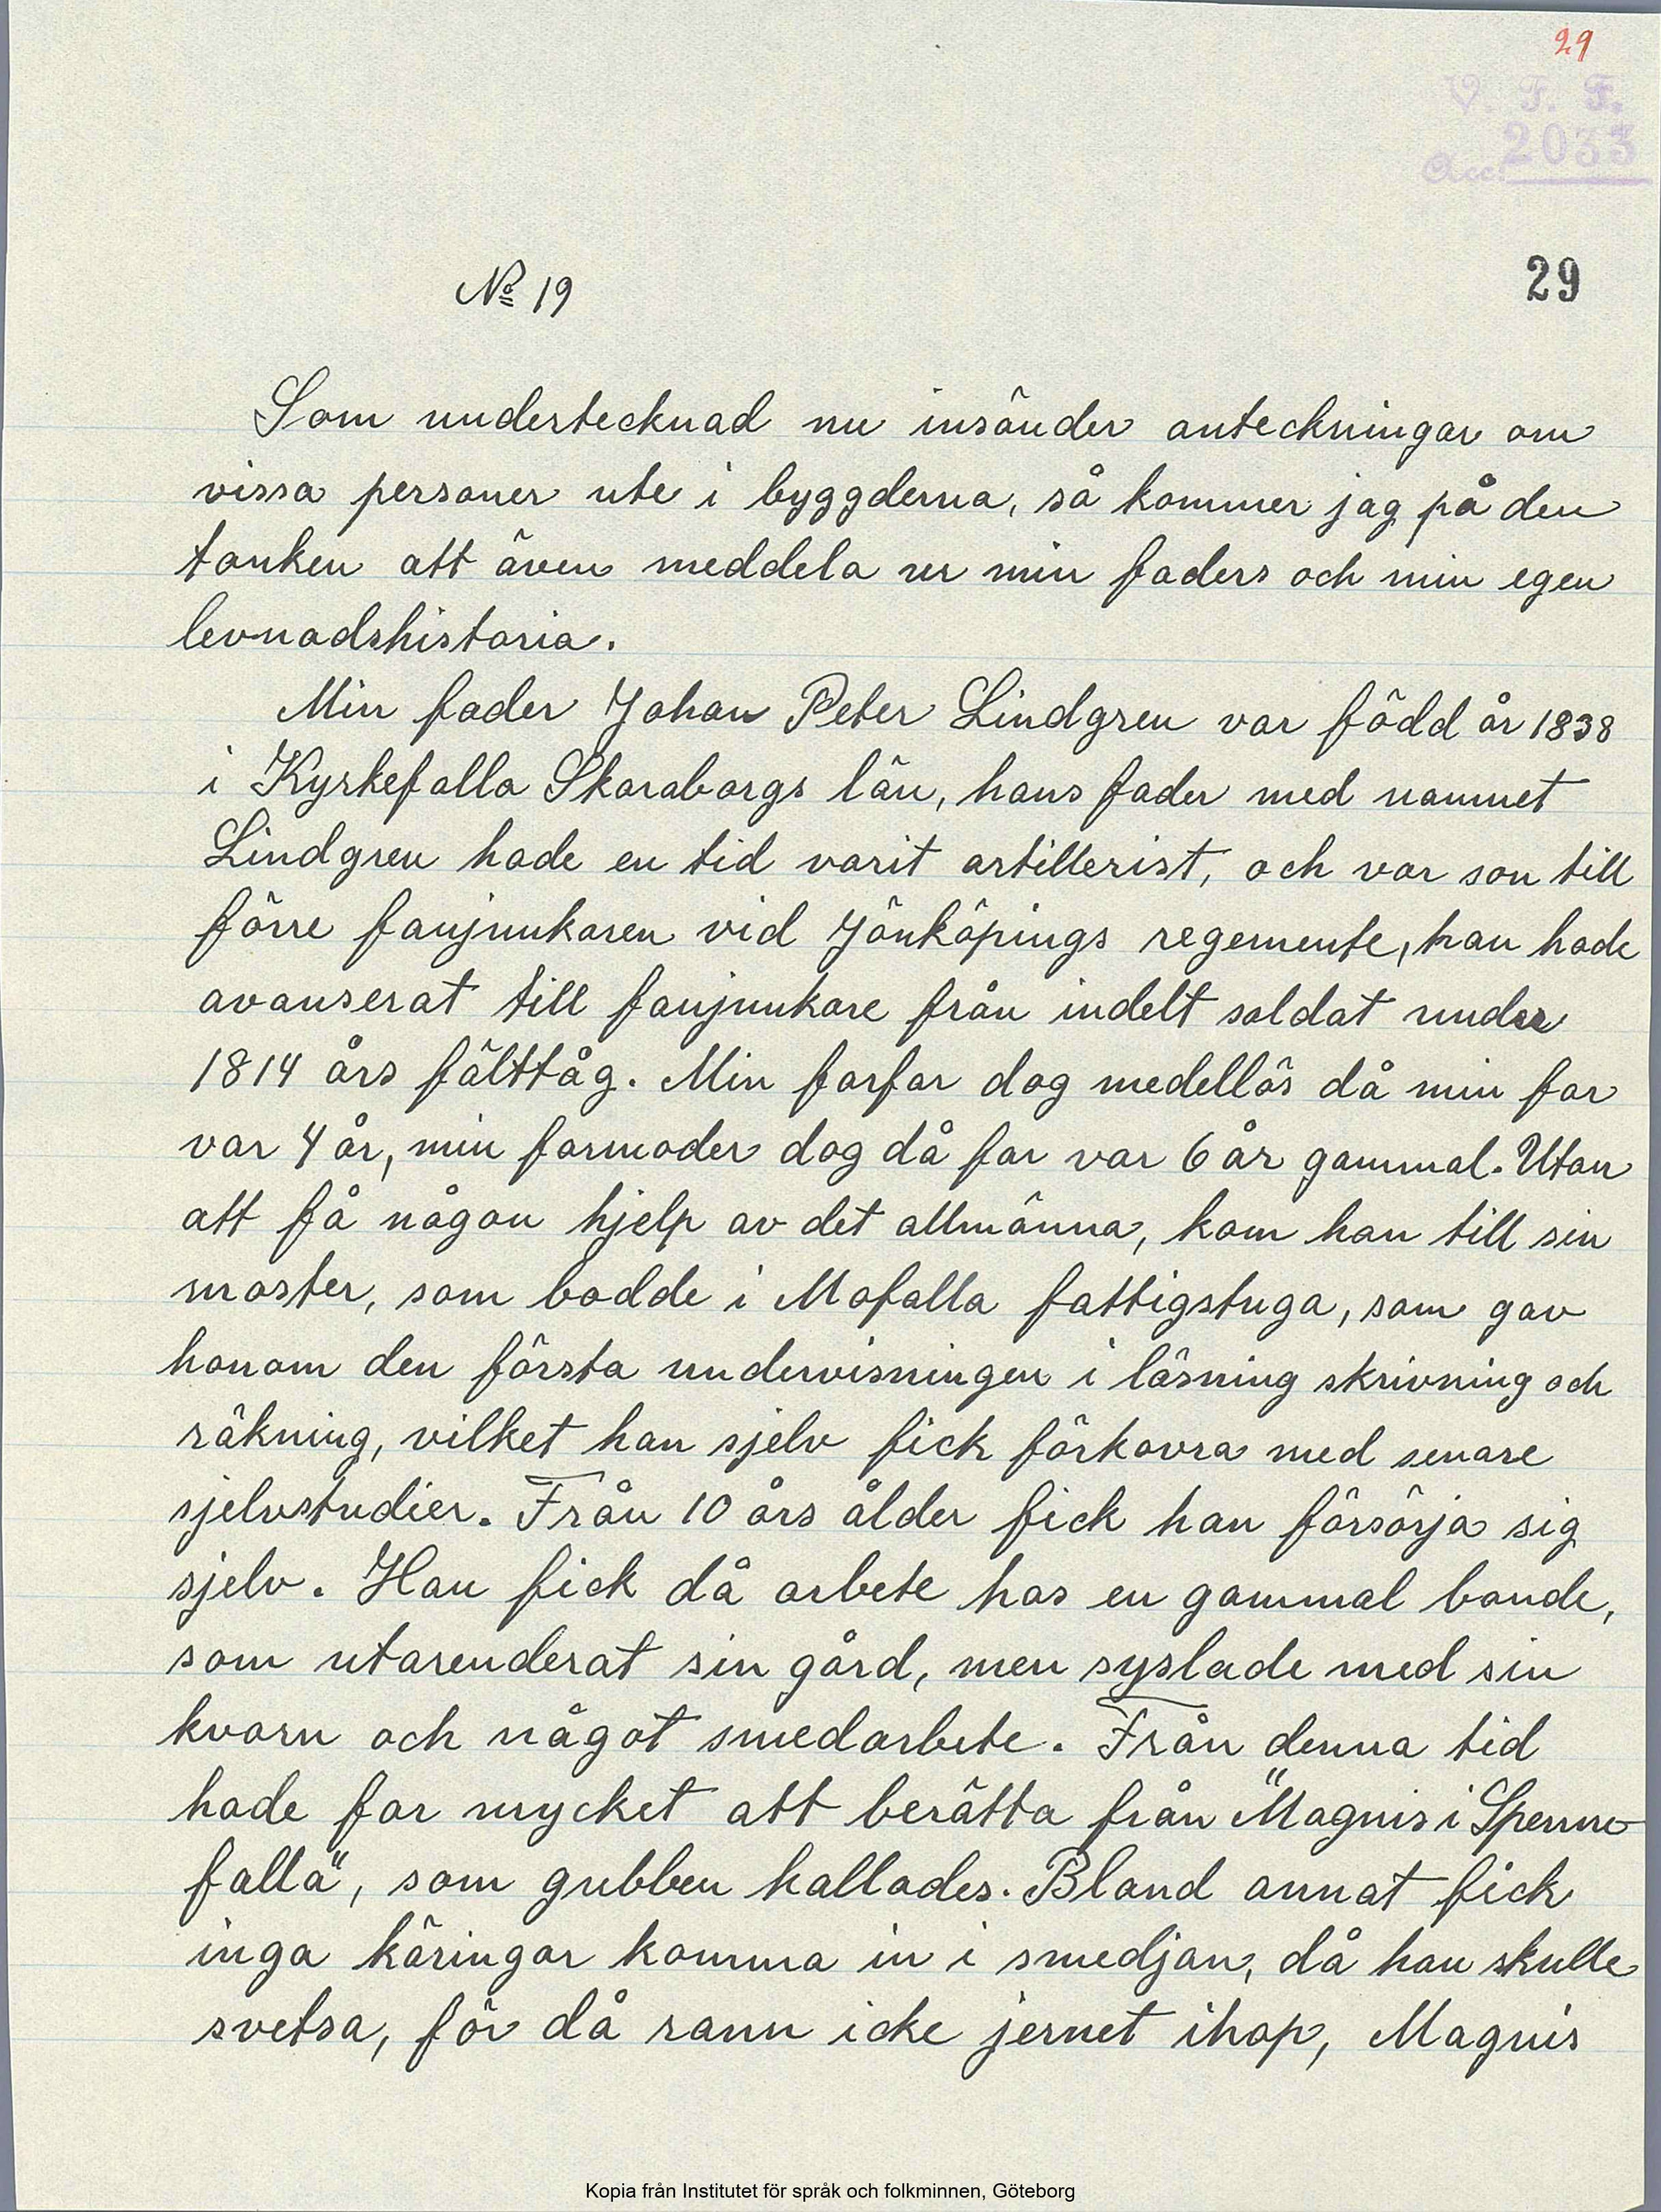 29
V. F. F.
Acc. 2033
29
No 19
Som undertecknad nu insänder anteckningar om
vissa personer ute i byggderna, så kommer jag på den
tanken att även meddela er min faders och min egen
levnadshistoria.
Min fader Johan Peter Lindgren var född år 1838
i Kyrkefalla Skaraborgs län, hans fader med namnet
Lindgren hade en tid varit artillerist, och var son till
förre fanjunkaren vid Jönköpings regemente, han hade
avanserat till fanjunkare från indelt soldat under
1814 års fälttåg. Min farfar dog medellös då min far
var 4 år, min farmoder dog då far var 6 år gammal. Utan
att få någon hjelp av det allmänna, kom han till sin
moster, som bodde i Mofalla fattigstuga, som gav
honom den första undervisningen i läsning skrivning och
räkning, vilket han sjelv fick förkovra med senare
sjelvstudier. Från 10 års ålder fick han försörja sig
sjelv. Han fick då arbete hos en gammal bonde,
som utarenderat sin gård, men syslade med sin
kvarn och något smedarbete. Från denna tid
hade far mycket att berätta från "Magnis i Spenne-
falla", som gubben kallades. Bland annat fick
inga käringar komma in i smedjan, då han skulle
svetsa, för då rann icke jernet ihop, Magnis
Kopia från Institutet för språk och folkminnen, Göteborg